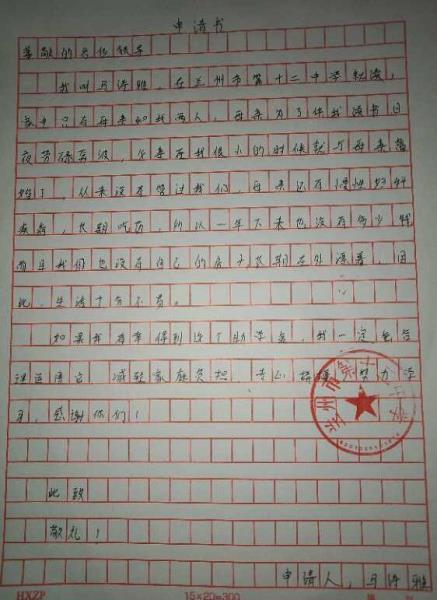 申请书
尊敬的各位领导
我叫马诗雅，在兰州市第十二中学就读，
家中只有母亲和我两人，母亲为了供我读书日
夜劳碌奔波，父亲在我很小的时候就与母亲离
婚了，从来没有管过我们，母亲还有慢性
疾病，长期吃药，所以一年下来也没有多少钱
而且我们也没有自己的房子长期在外漂着，因
此，生活十分不易。
如果我有幸得到这个助学金，我一定会合
理运用它，减轻家庭负担，专心 努力学
习，感谢你们！
此致
敬礼！
申请人，马诗雅
HXZP 15×20=300
兰州市第十二中学